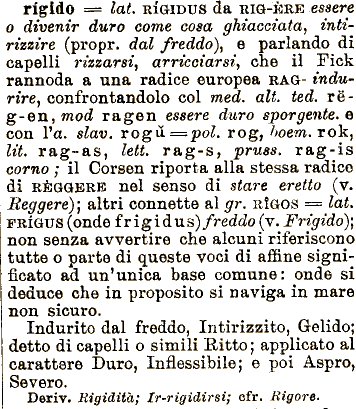 rígido = lat. RÍGIDUS da RIG-ÈRE essere
o divenir duro come cosa ghiacciata, inti-
rizzire (propr. dal freddo), e parlando di
capelli rizzarsi, arricciarsi, che il Fick
rannoda a una radice europea RAG- indu-
rire, confrontandolo col med. alt. ted. rë-
g-en, mod ragen essere duro sporgente. e
con l'a. slav. rogŭ = pol. rog, boem. rok,
lit. rag-as, lett. rag-s, pruss. rag-is
corno; il Corsen riporta alla stessa radice
di RÈGGERE nel senso di stare eretto (v.
Reggere); altri connette al gr. RÎGOS = lat.
FRÍGUS (onde frigidus) freddo (v. Frigido);
non senza avvertire che alcuni riferiscono
tutte o parte di queste voci di affine signi-
ficato ad un'unica base comune: onde si
deduce che in proposito si naviga in mare
non sicuro.
Indurito dal freddo, Intirizzito, Gelido;
detto di capelli o simili Ritto; applicato al
carattere Duro, Inflessibile; e poi Aspro,
Severo.
Deriv. Rigidità; Ir-rigidirsi; cfr. Rigore.